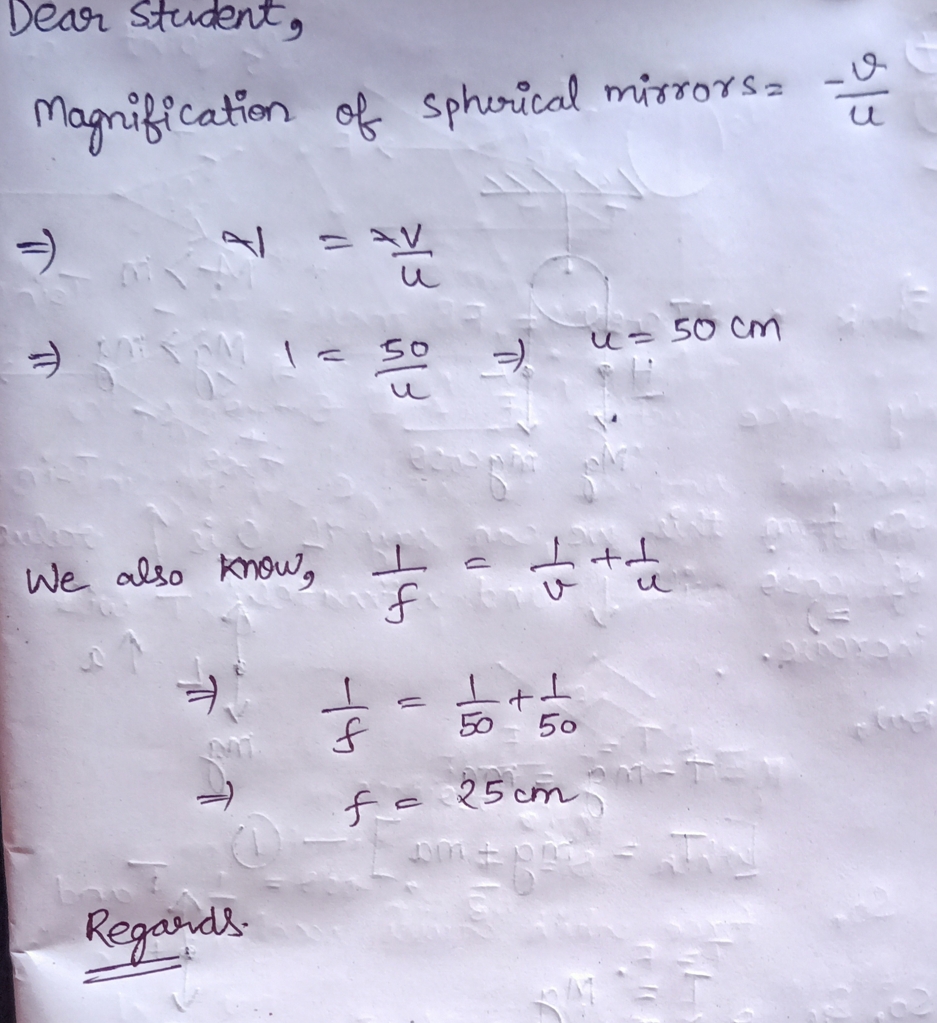 Dear Student,
Magnification of spherical mirrors = -v/u
⇒ -1 = -v/u
⇒ 1 = 50/u ⇒ u = 50 cm
We also know, 1/f = 1/v + 1/u
⇒ 1/f = 1/50 + 1/50
⇒ f = 25 cm
Regards.